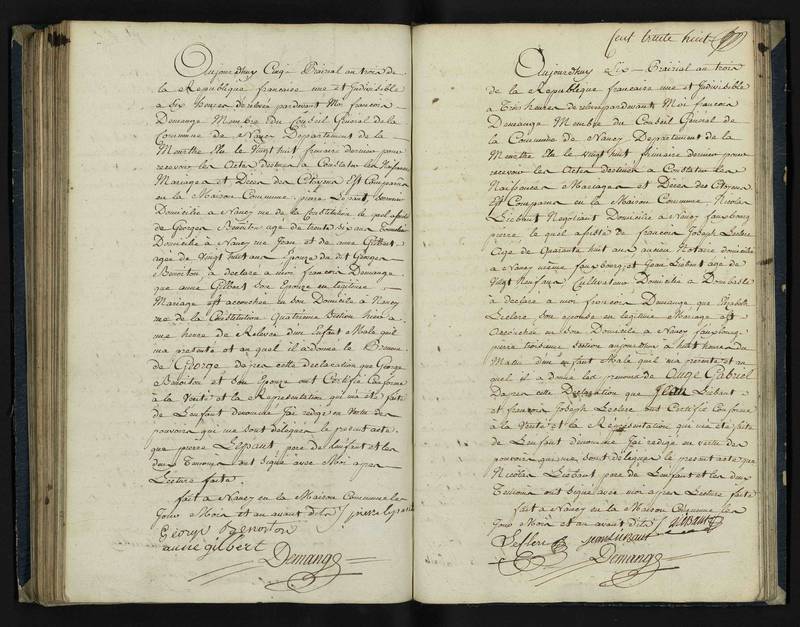 Aujourdhuy Cinq Prairial an trois de
la Republique francaise une et Indivisible
a Six heures de relevée pardevant Moi francois
Demange Membre du Conseil Général de la
Commune de Nancy Departement de la
Meurthe Elu le Vingt huit frimaire dernier pour
recevoir les Actes destinés a Constater les Naissances
Mariages et Décès des Citoyens Est Comparu
en la Maison Commune pierre Lepant
Domicilié a Nancy rue de la Constitution le quel assisté
de Georges Benoiton agé de trente six ans
Domicilié a Nancy rue Jean et de anne Gilbert
agée de Vingt huit ans Epouze du dit Georges
Benoiton a déclaré a moi francois Demange
que anne Gilbert son Epouze en légitime
Mariage est accouchée en son Domicile à Nancy
rue de la Constitution Quatrieme Section hier a
une heure de Relevée d'un Enfant Male quil
ma présenté et au quel il a donné le Prenom
de George dapres cette déclaration que George
Benoiton et son Epouze ont Certifié Conforme
à la Vérité et la Représentation qui m'a été faite
de L'enfant denommé J'ai redigé en Vertu des
pouvoirs qui me sont délégués le présent acte
que pierre Lepant pere de L'enfant et les
deux Temoins ont Signé avec Moi apres
Lecture faite.
fait a Nancy en la Maison Commune les
Jour Mois et an avant dits / pierre lepant
George Benoiton
anne gilbert
Demange
Cent trente huit
Aujourdhuy Six Prairial an trois
de la Republique francaise une et Indivisible
a Trois heures de relevée pardevant Moi francois
Demange Membre du Conseil Général de
la Commune de Nancy Departement de la
Meurthe Elu le vingt huit frimaire dernier pour
recevoir les Actes destinés a Constater les
Naissances Mariages et Décès des Citoyens
Est Comparu en la Maison Commune Nicolas
Liebaut Negotiant Domicilié a Nancy fauxbourg
pierre le quel assisté de francois Joseph Leclerc
Agé de Quarante huit ans ancien Notaire domicilié
a Nancy même fauxbourg, et Jean Liebaut agé de
Vingt Neuf ans Cultivateur Domicilié a Dombasle
a déclaré a moi francois Demange, que Elizabeth
Leclerc son epouse en légitime Mariage est
accouchée en Son Domicile a Nancy fauxbourg
pierre troisieme Section aujourdhui à huit heures du
Matin d'un enfant Male quil m'a présenté et au
quel il a donné les prenoms de Ange Gabriel
Dapres cette Declaration que Jean Liebaut
et francois Joseph Leclerc ont Certifié Conforme
à la Vérité et la Représentation qui m'a été faite
de L'enfant denommé J'ai redigé en vertu des
pouvoirs qui me sont délégués le présent acte que
Nicolas Liebaut pere de L'enfant et les deux
Temoins ont signé avec moi apres Lecture faite
fait a Nancy en la Maison Commune les
Jour Mois et an avant dits / N Liebaut
Leclerc Jean Liebaut
Demange